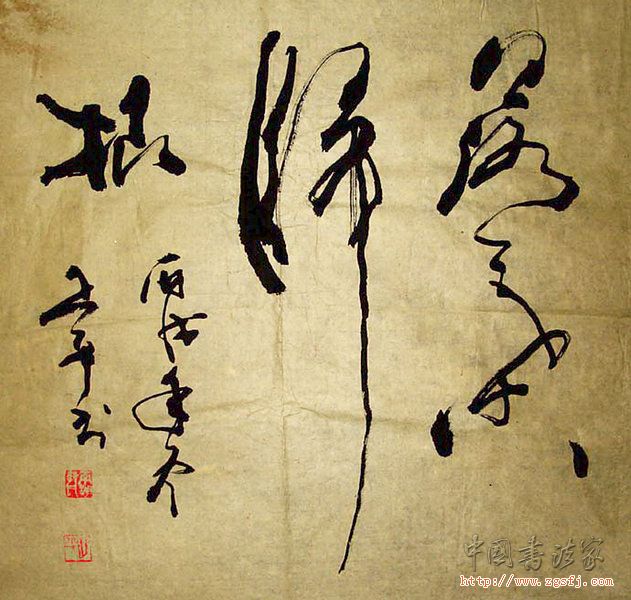 落葉
歸
根
丙戌年冬
中国书法家
http://www.zgsfj.com